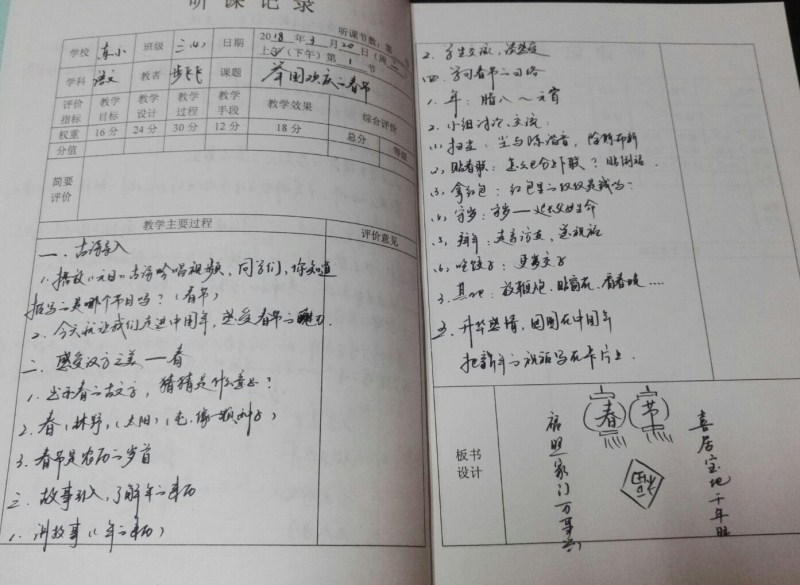 听课记录
听课节数：第
学校 东小 班级 三(1) 日期 2018年3月20日(周
上午(下午)第1节
学科 语文 教者 课题 举国欢庆的春节
评价指标 教学目标 教学设计 教学过程 教学手段 教学效果 综合评价
权重 16分 24分 30分 12分 18分 总分 等级
分值
简要评价
教学主要过程 评价意见
一、古诗导入
1. 播放《元日》古诗吟唱视频，同学们，你知道
描写的是哪个节日吗？(春节)
2. 今天就让我们走进中国年，感受春节的魅力.
二、感受汉字之美——春
1. 出示春的古文字，猜猜是什么意思？
2. 春(林野)，(太阳)(屯.像一颗种子)
3. 春节是农历的岁首
三、故事引入，了解年的来历
1. 讲故事(年的来历)
2. 学生交流，谈感受
四、学习春节的习俗
1. 年：腊八～元宵
2. 小组讨论、交流：
(1) 扫尘：尘与陈谐音，除陈布新
(2) 贴春联：怎么区分上下联？贴倒福.
(3) 拿红包：红包里的仅仅是钱吗？
(4) 守岁：守岁—为父母延寿命
(5) 拜年：走亲访友，送祝福
(6) 吃饺子：更岁交子
3. 其他：放鞭炮.贴窗花.看春晚....
五、升华感情，团圆在中国年
把新年的祝福写在卡片上.
板书设计
春节
福照家门万事兴
喜居宝地千年旺
福